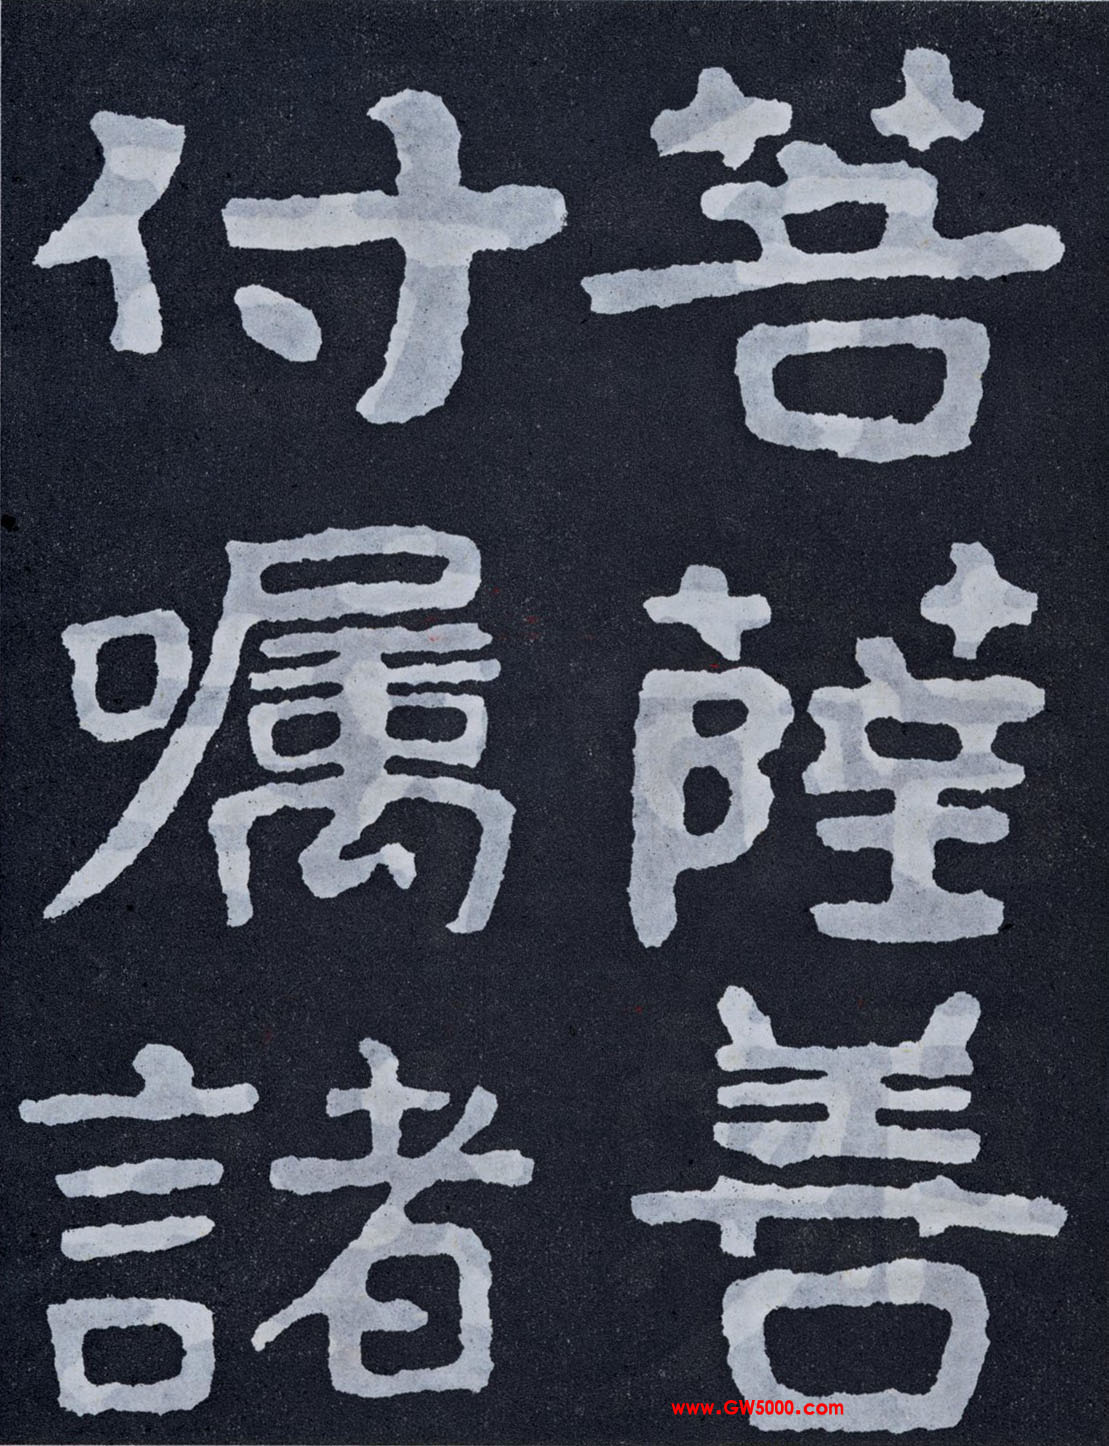 菩薩善
付嘱諸
www.GW5000.com